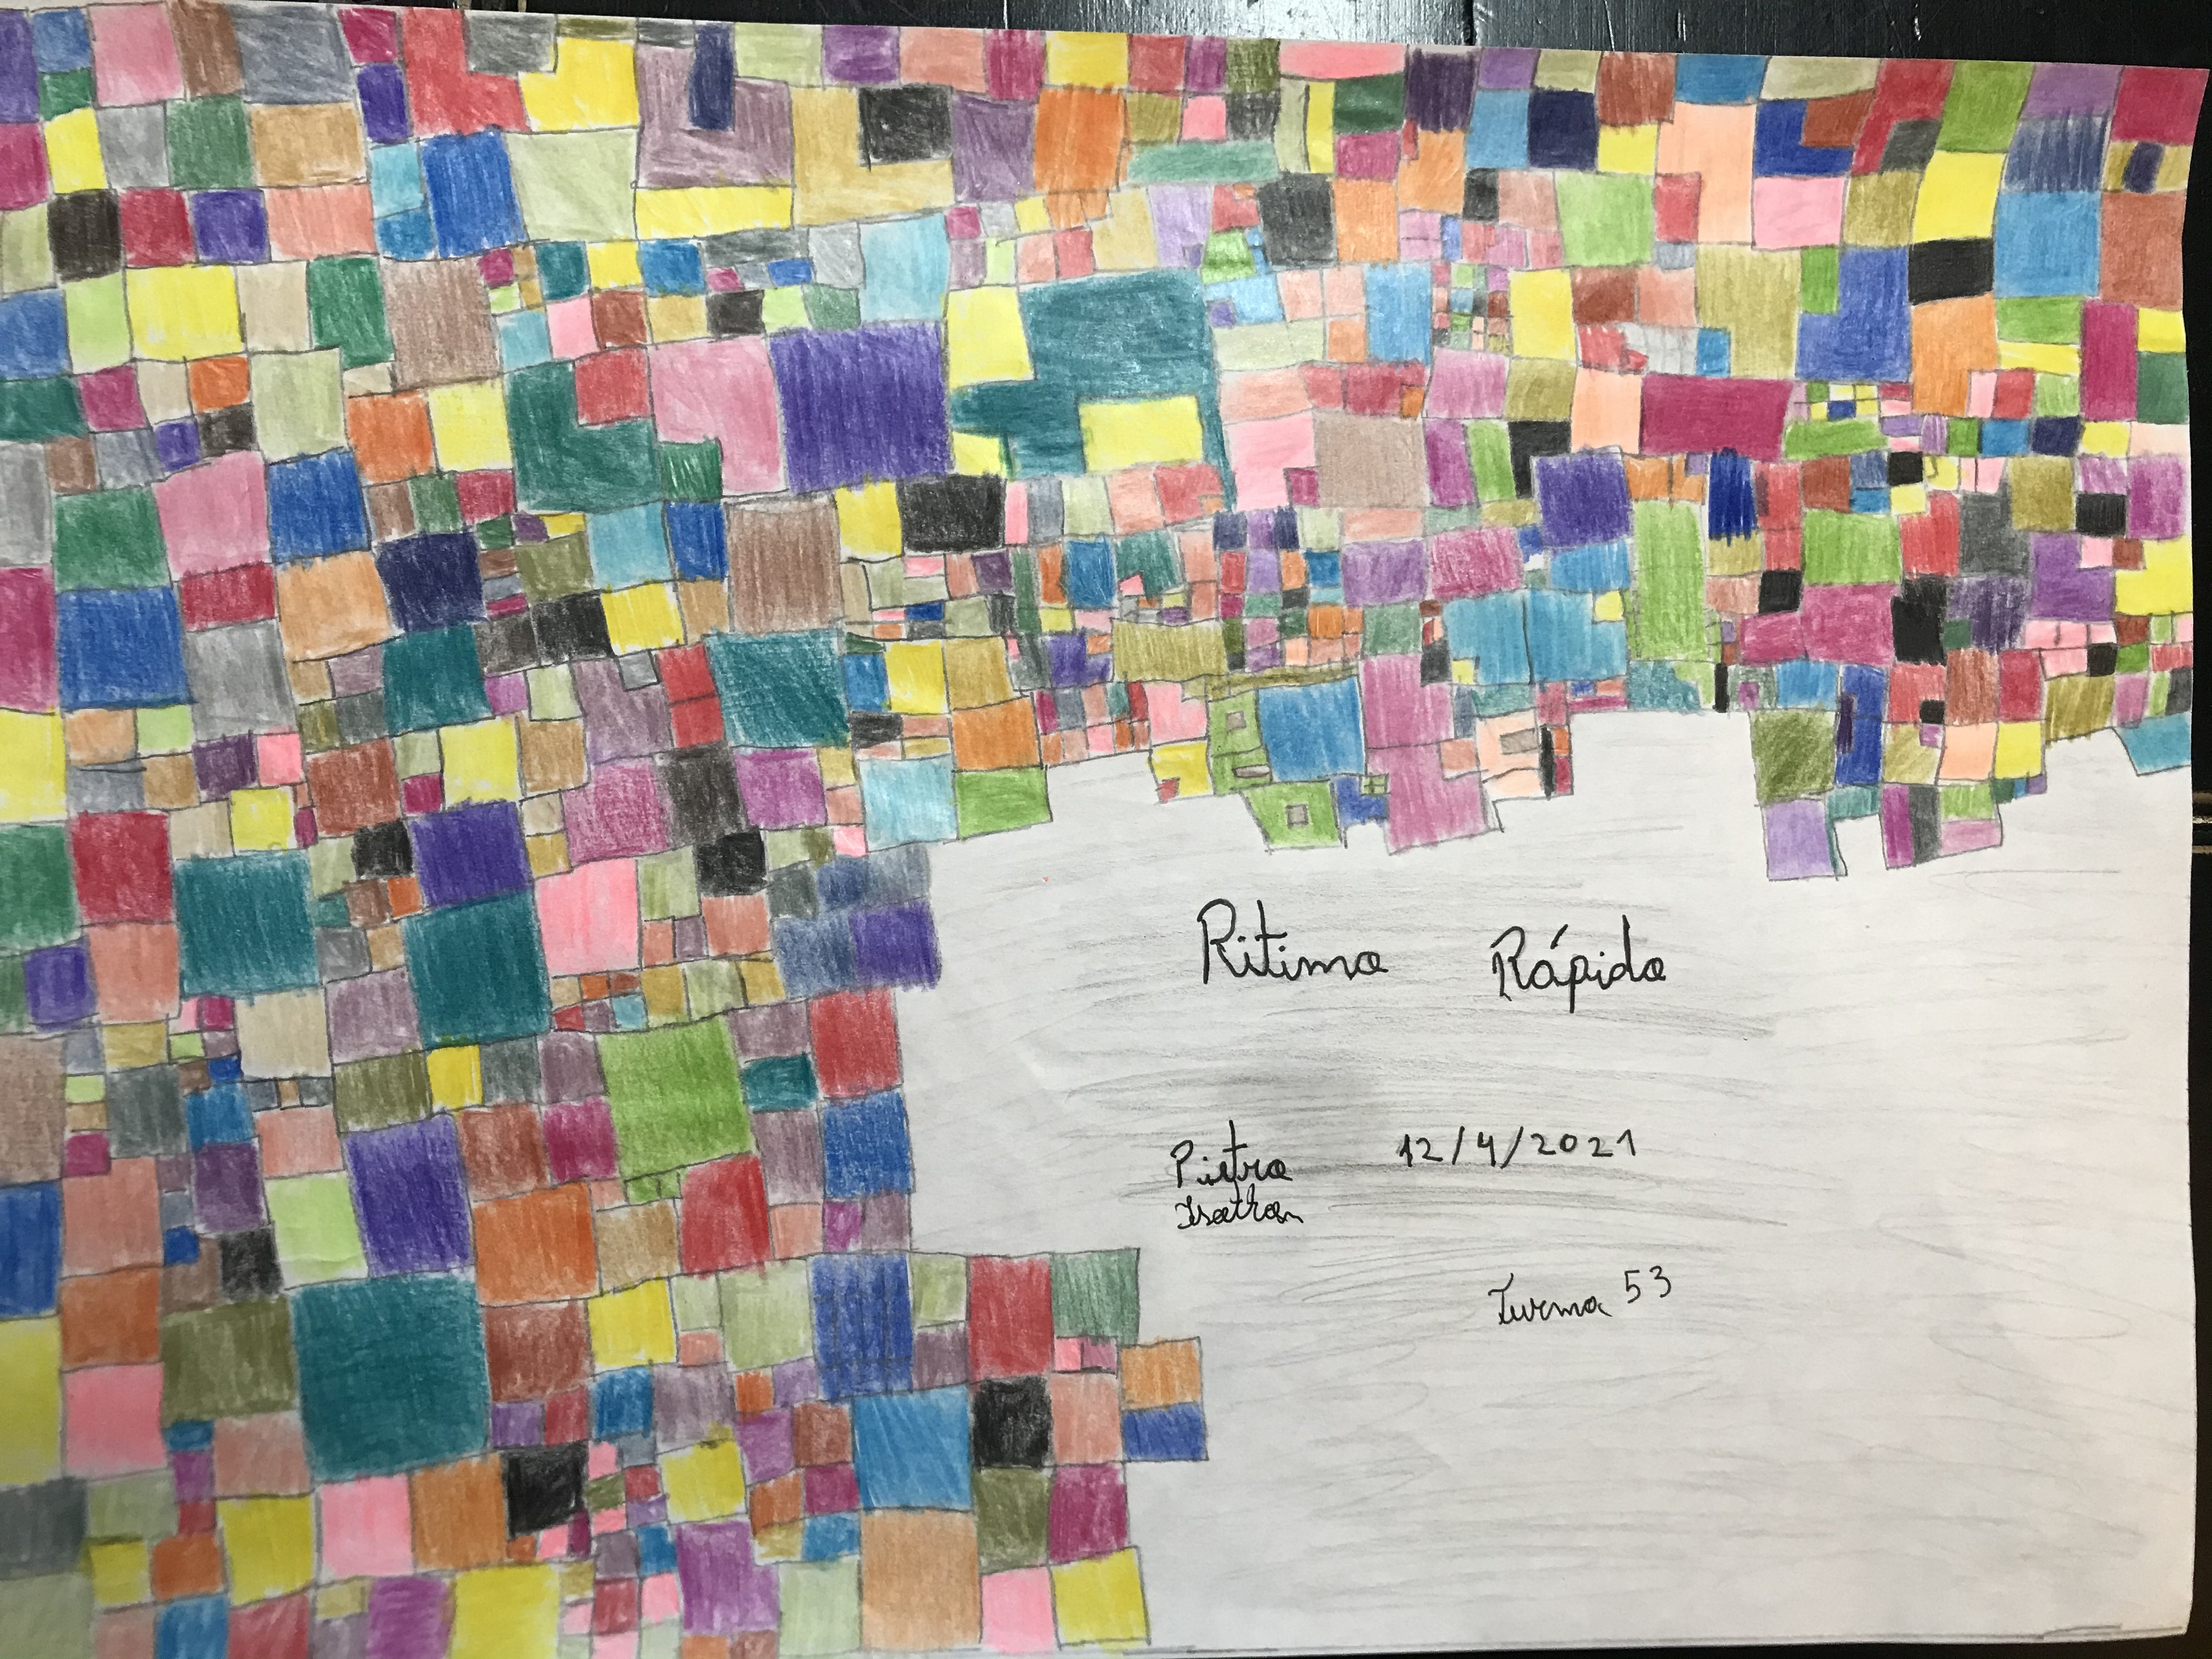 Ritimo Rápido
Pietra 12/4/2021
Turma 53